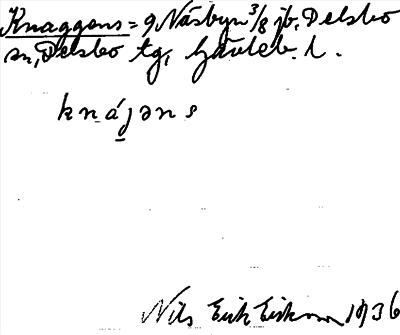 Knaggens = g Näsbyn 3/8 jb, Delsbo
sn, Delsbo tg, Gävleb. l.
knájəns
Nils Erik Eriksson 1936